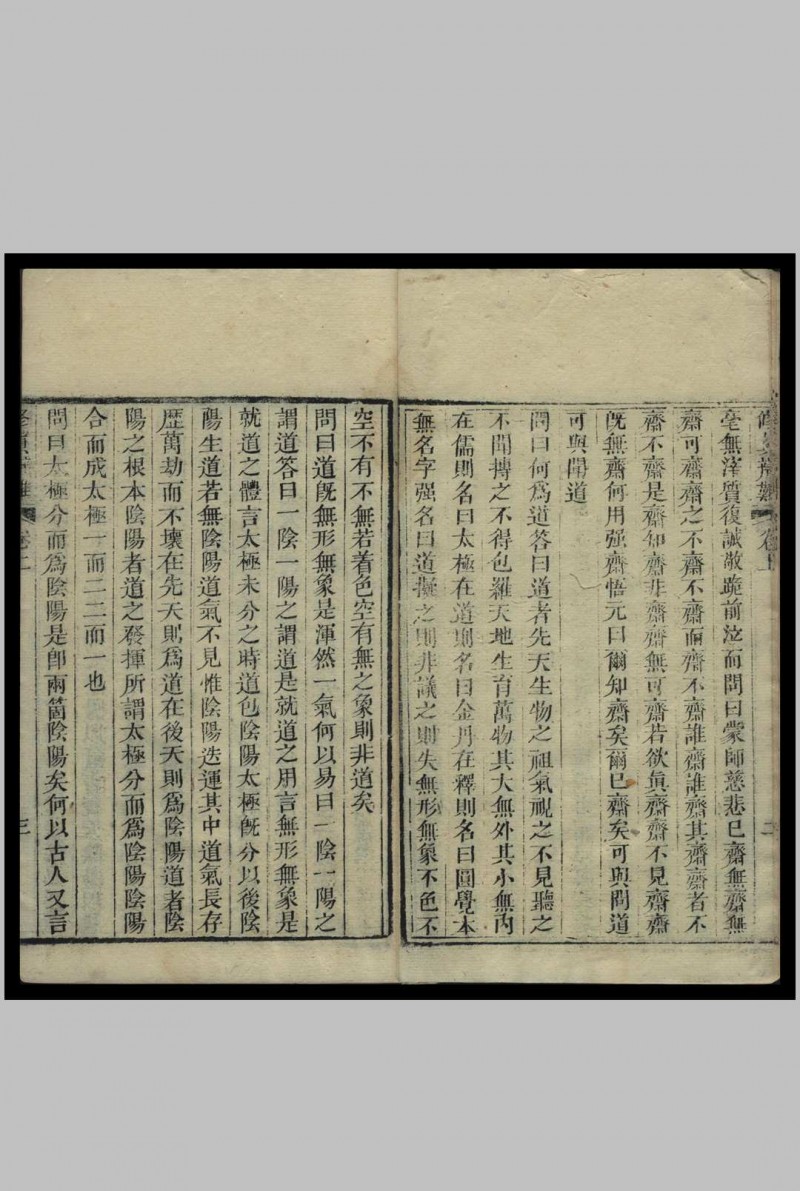 毫無滓質復誠敬跪前泣而問曰蒙師慈悲已齋無齋無
齋可齋齋之不齋不齋而齋不齋誰齋誰齋其齋齋者不
齋不齋是齋知齋非齋齋無可齋若欲眞齋齋不見齋齋
旣無齋何用强齋悟元曰爾知齋矣爾已齋矣可與問道
可與聞道
問曰何爲道答曰道者先天生物之祖氣視之不見聽之
不聞搏之不得包羅天地生育萬物其大無外其小無內
在儒則名曰太極在道則名曰金丹在釋則名曰圓覺本
無名字强名曰道擬之則非議之則失無形無象不色不
空不有不無若着色空有無之象則非道矣
問曰道旣無形無象是渾然一氣何以易曰一陰一陽之
謂道答曰一陰一陽之謂道是就道之用言無形無象是
就道之體言太極未分之時道包陰陽太極旣分以後陰
陽生道若無陰陽道氣不見惟陰陽迭運其中道氣長存
歷萬劫而不壞在先天則爲道在後天則爲陰陽道者陰
陽之根本陰陽者道之發揮所謂太極分而爲陰陽陰陽
合而成太極一而二二而一也
問曰太極分而爲陰陽是卽兩箇陰陽矣何以古人又言
三